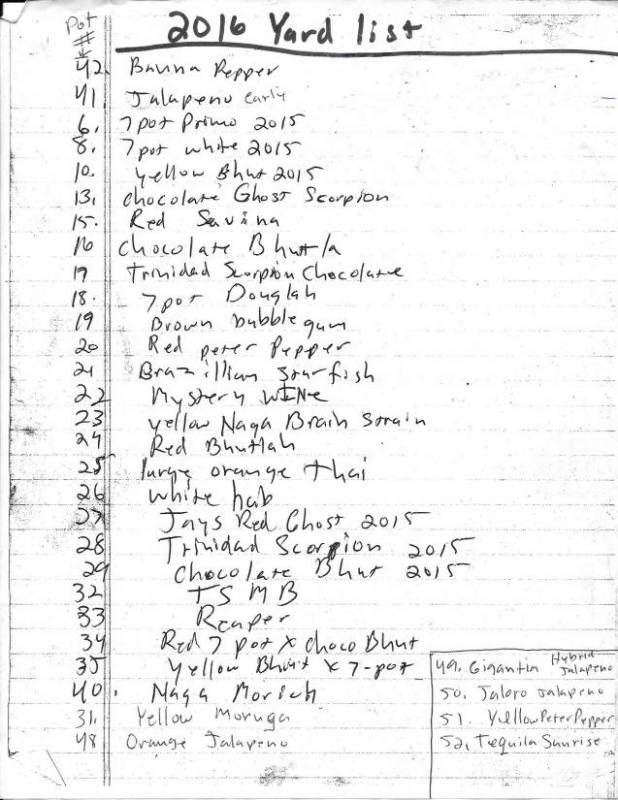 Pot
#
2016 Yard list
42. Bavina Pepper
41. Jalapeno early
6. 7pot Primo 2015
8. 7pot white 2015
10. yellow Bhut 2015
13. chocolate Ghost Scorpion
15. Red Savina
16 Chocolate Bhutla
17 Trinidad Scorpion Chocolate
18. 7pot Douglah
19 Brown bubblegum
20 Red peter Pepper
21 Brazillian Starfish
22 Mystery WINe
23 yellow Naga Brain Strain
24 Red Bhutlah
25 large orange Thai
26 white hab
27 Jays Red Ghost 2015
28 Trinidad Scorpion 2015
29 Chocolate Bhut 2015
32 TSMB
33 Reaper
34 Red 7pot x choco Bhut
35 Yellow Bhut x 7-pot
40. Naga Morich
31. Yellow Moruga
48 Orange Jalapeno
49. Gigantia Hybrid Jalapeno
50. Jaloro Jalapeno
51. Yellow Peter Pepper
52. Tequila Sunrise